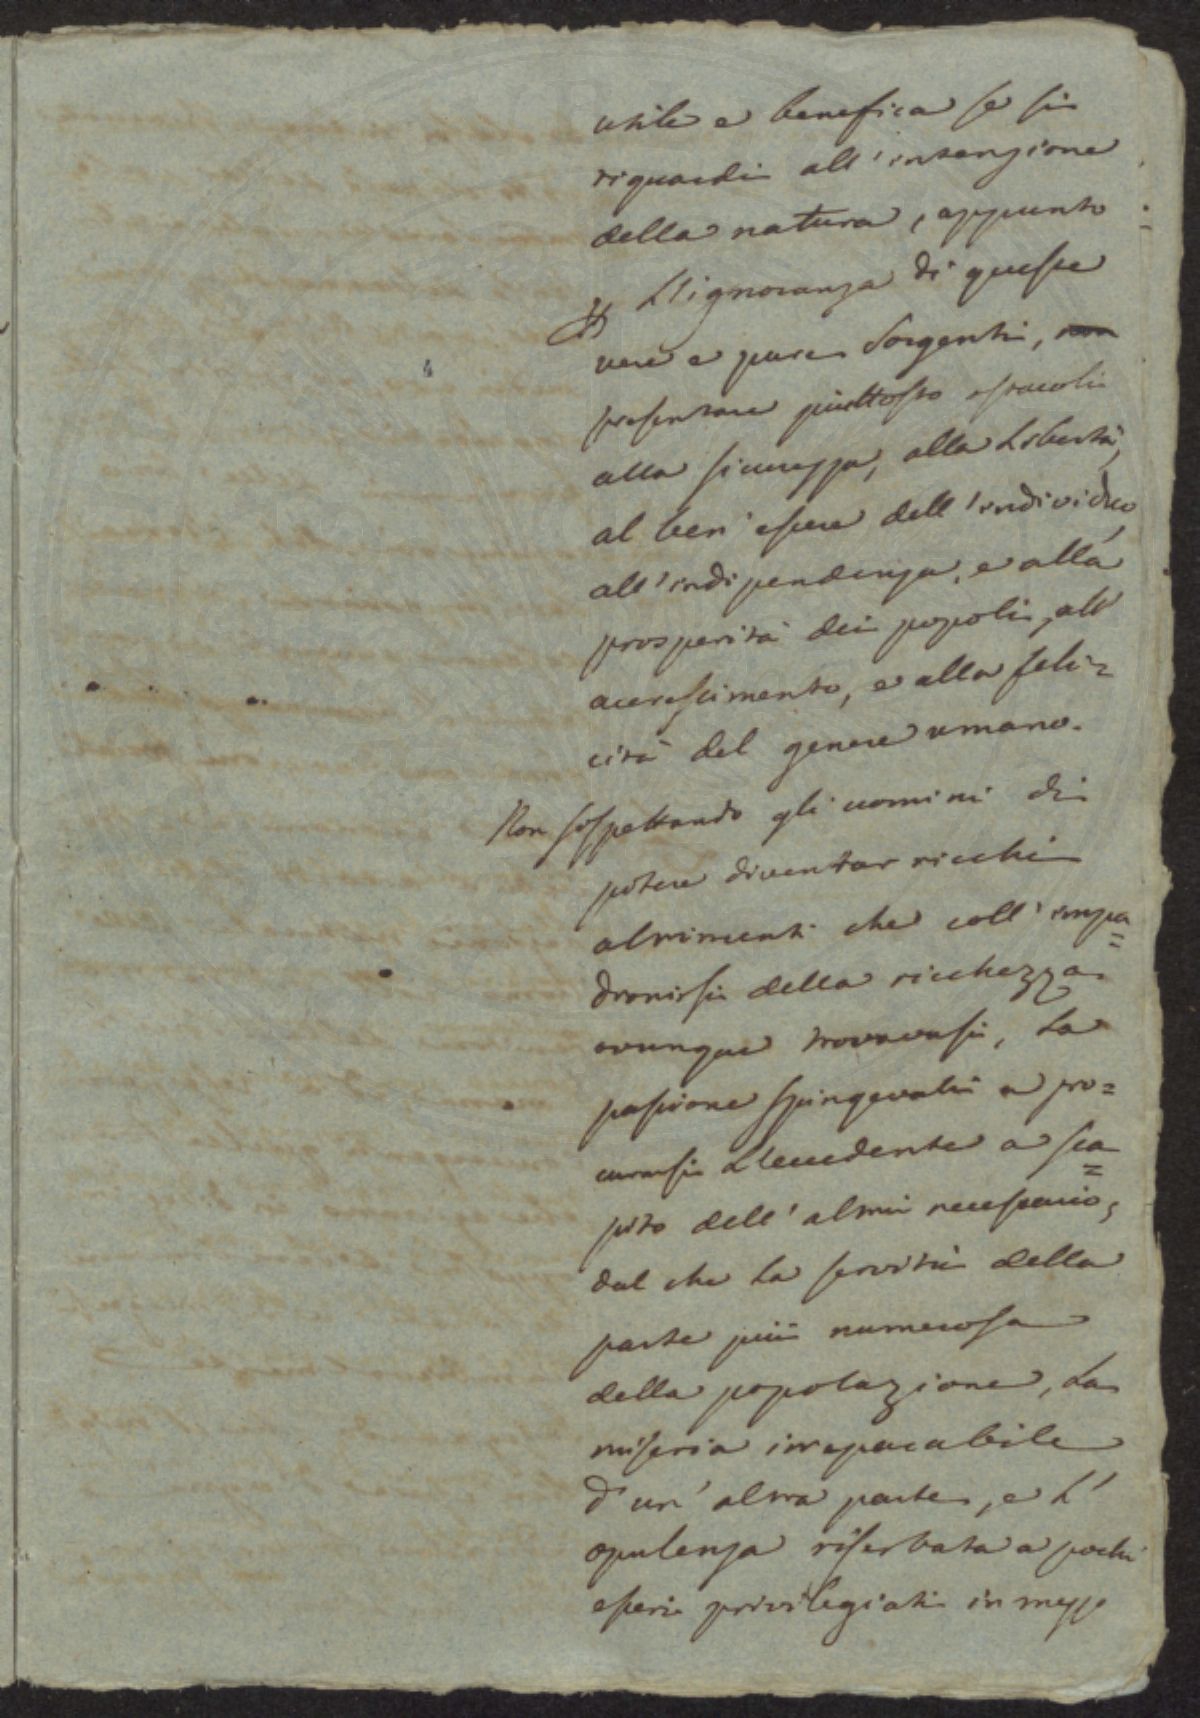 utile e benefica se si
riguardi all'intenzione
della natura, appunto
L'ignoranza di queste
vere e pure Sorgenti, non
presentare piuttosto ostacoli
alla sicurezza, alla Libertà,
al ben'essere dell'individuo,
all'indipendenza, e alla
prosperità dei popoli, all'
accrescimento, e alla feli=
cità del genere umano.
Non sospettando gli uomini di
potere diventar ricchi
altrimenti che coll'impa=
dronirsi della ricchezza
ovunque trovavasi, La
passione spingevali a pro=
curarsi L'eccedente a sca=
pito dell'altrui necessario,
dal che La servitù della
parte più numerosa
della popolazione, La
miseria irreparabile
d'un'altra parte, e L'
opulenza riserbata a pochi
esseri privilegiati in mezzo